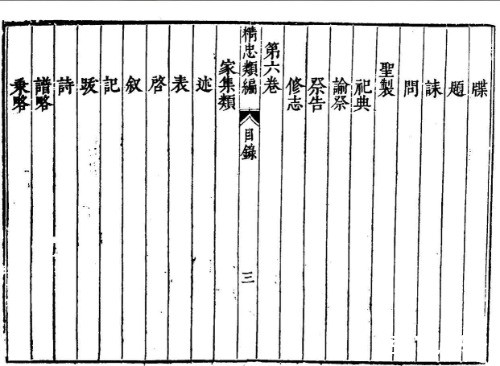 牒
題
誄
問
聖製
祀典
諭祭
祭告
修志
第六卷
精忠類編 目錄 三
家集類
述
表
啓
叙
記
跋
詩
譜略
乘略